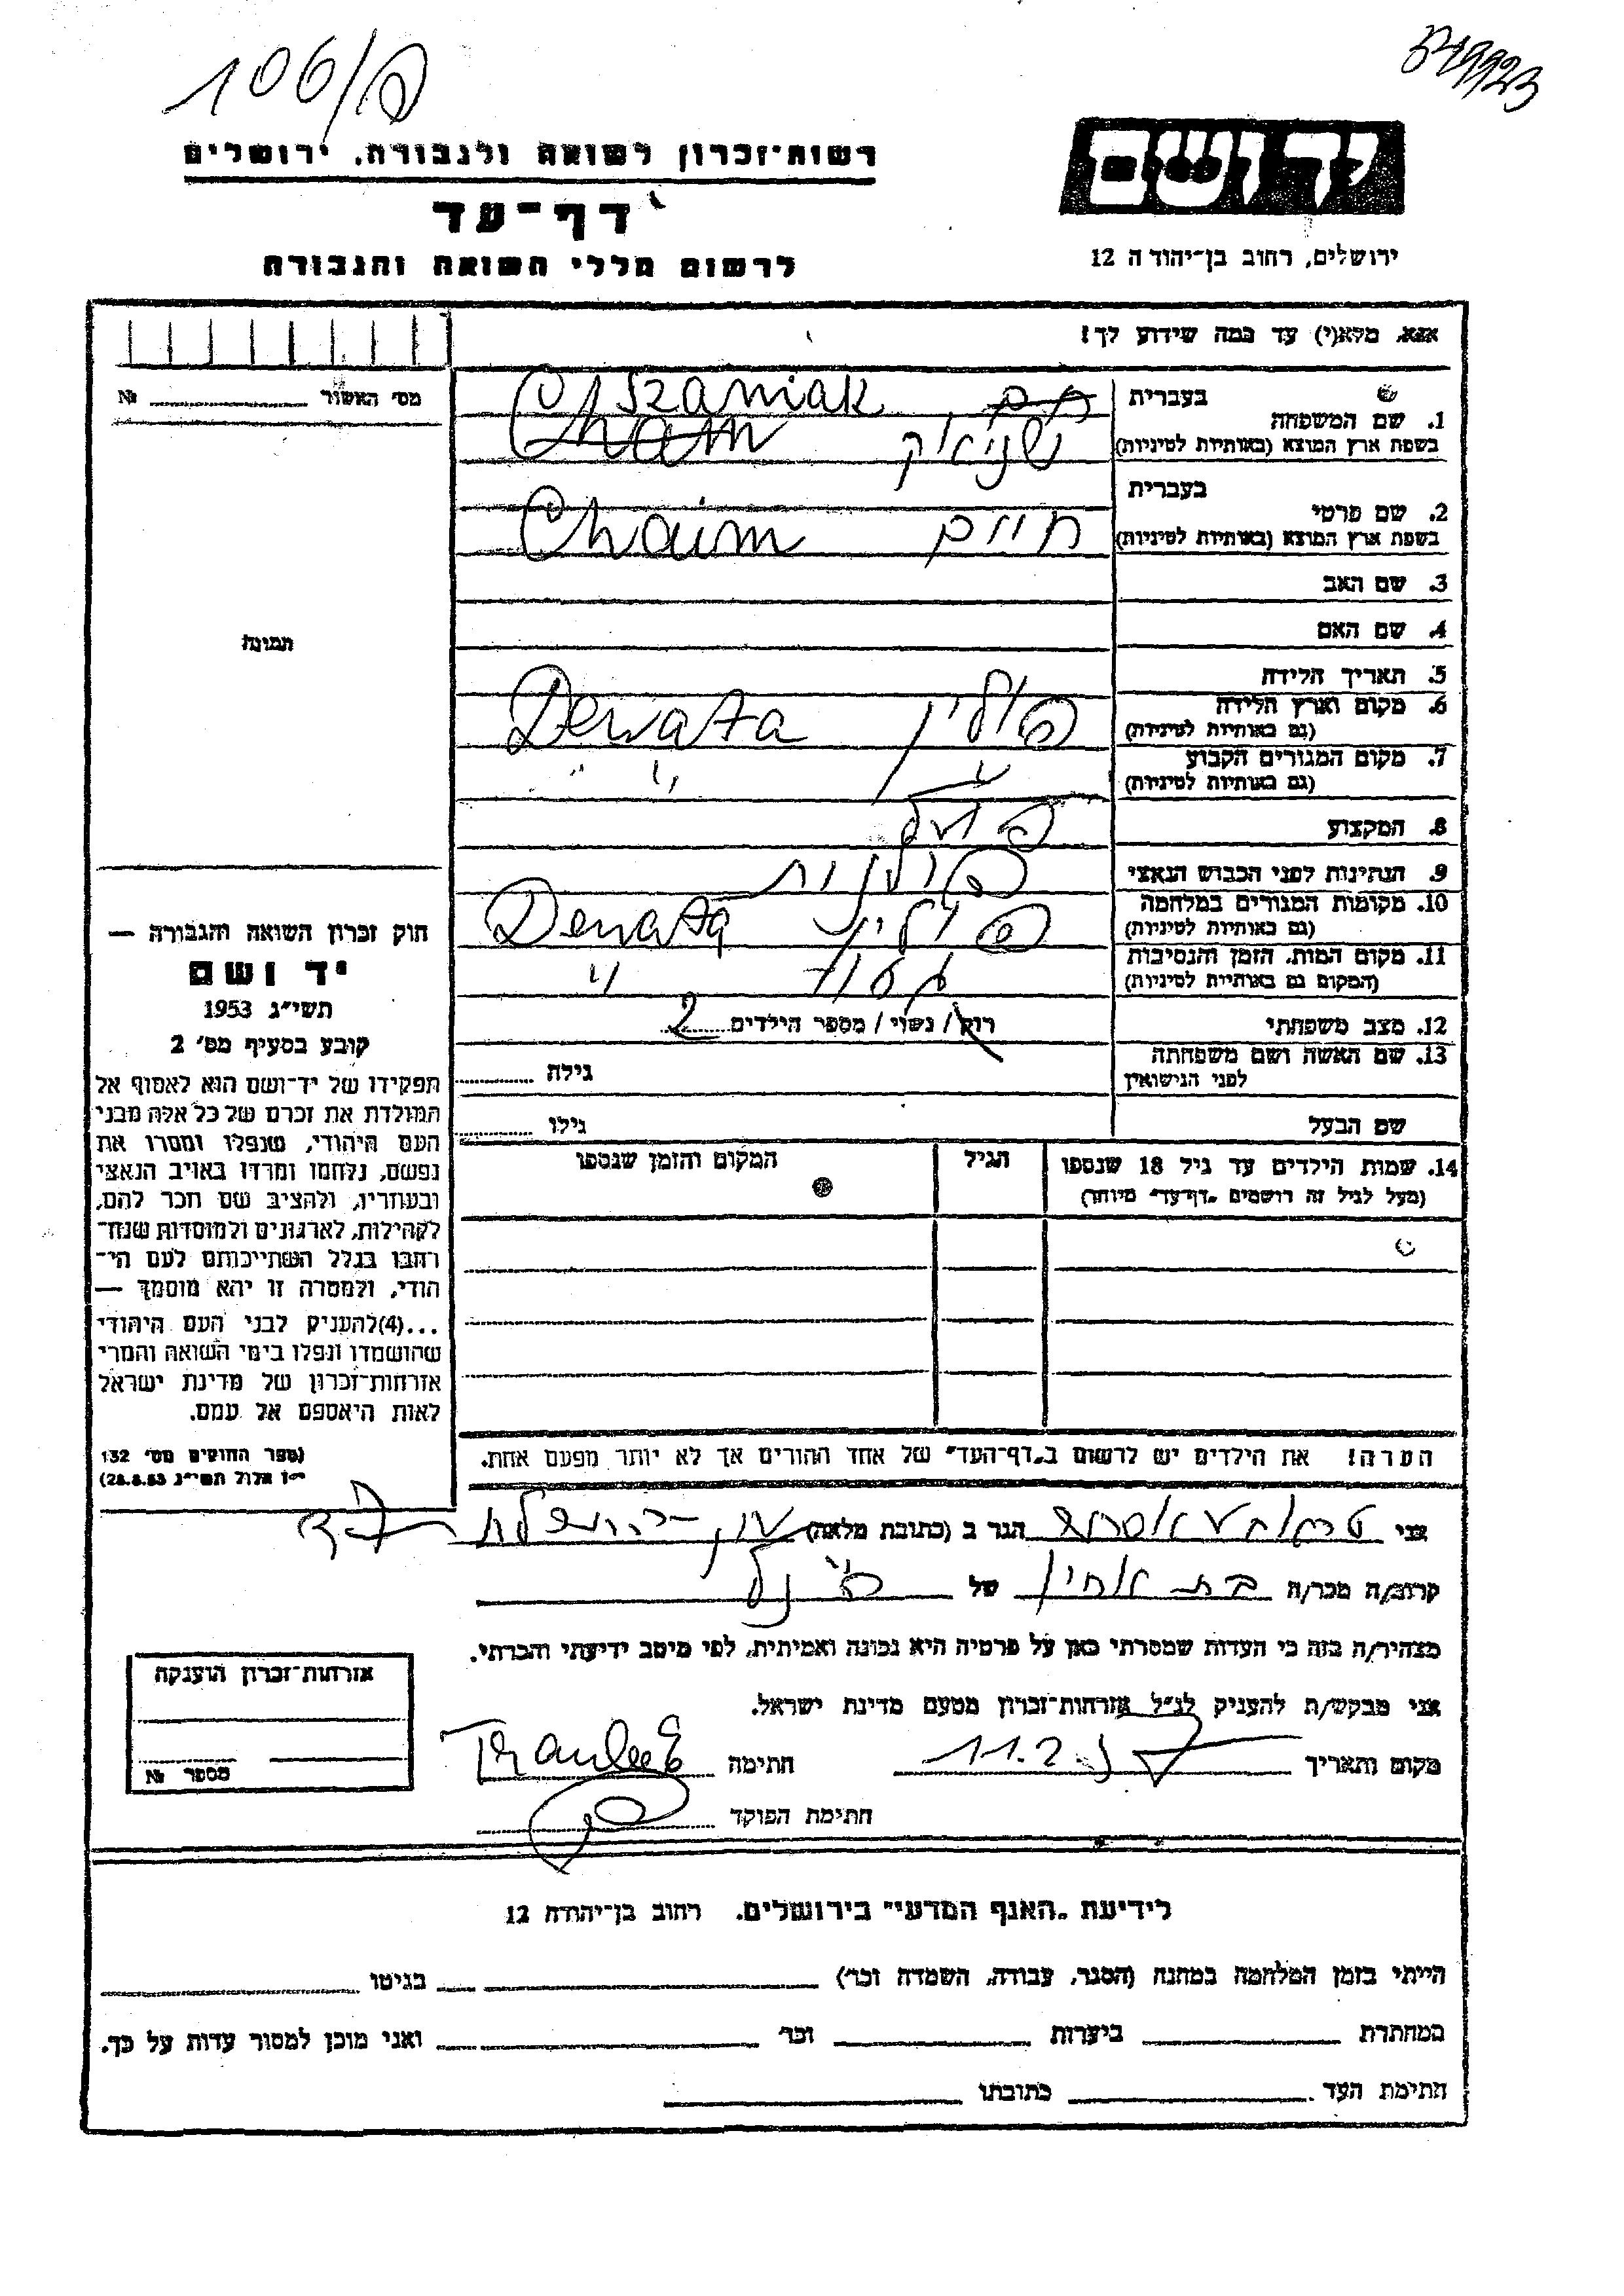 106/פ
רשות־זכרון לשואה ולגבורה, ירושלים
דף־עד
לרשום חללי השואה והגבורה
יד ושם
ירושלים, רחוב בן־יהודה 12
אנא, מלא(י) עד כמה שידוע לך!
מס׳ האשור № 
בעברית
1. שם המשפחה
בשפת ארץ המוצא (באותיות לטיניות)
Szaniak
Chaim
שניאק
בעברית
2. שם פרטי
בשפת ארץ המוצא (באותיות לטיניות)
חיים Chaim
3. שם האב
4. שם האם
תמונה
5. תאריך הלידה
6. מקום וארץ הלידה
(גם באותיות לטיניות)
פולין
7. מקום המגורים הקבוע
(גם באותיות לטיניות)
8. המקצוע
9. הנתינות לפני הכבוש הנאצי
פולנית
10. מקומות המגורים במלחמה
(גם באותיות לטיניות)
פולין
11. מקום המות, הזמן והנסיבות
(המקום גם באותיות לטיניות)
12. מצב משפחתי רוק / נשוי / מספר הילדים 2
13. שם האשה ושם משפחתה
לפני הנישואין
גילה
שם הבעל גילו
14. שמות הילדים עד גיל 18 שנספו הגיל המקום והזמן שנספו
(מעל לגיל זה רושמים „דף־עד״ מיוחד)
חוק זכרון השואה והגבורה —
יד ושם
תשי״ג 1953
קובע בסעיף מס׳ 2
תפקידו של יד־ושם הוא לאסוף אל
המולדת את זכרם של כל אלה מבני
העם היהודי, שנפלו ומסרו את
נפשם, נלחמו ומרדו באויב הנאצי
ובעוזריו, ולהציב שם וזכר להם,
לקהילות, לארגונים ולמוסדות שנח־
רבו בגלל השתייכותם לעם הי־
הודי, ולמטרה זו יהא מוסמך —
...(4)להעניק לבני העם היהודי
שהושמדו ונפלו בימי השואה והמרי
אזרחות־זכרון של מדינת ישראל
לאות היאספם אל עמם.
(ספר החוקים מס׳ 132
י״ז אלול תשי״ג 28.8.53)
הערה! את הילדים יש לרשום ב„דף־העד״ של אחד ההורים אך לא יותר מפעם אחת.
אני הגר ב (כתובת מלאה)
קרוב/ה מכר/ה בת אחין של הנ״ל
מצהיר/ה בזה כי העדות שמסרתי כאן על פרטיה היא נכונה ואמיתית, לפי מיטב ידיעתי והכרתי.
אני מבקש/ת להעניק לנ״ל אזרחות־זכרון מטעם מדינת ישראל.
מקום ותאריך 11.2.57 חתימה
חתימת הפוקד
אזרחות־זכרון הוענקה
מספר №
לידיעת „האגף המדעי״ בירושלים, רחוב בן־יהודה 12
הייתי בזמן המלחמה במחנה (הסגר, עבודה, השמדה וכר׳) בגיטו
במחתרת ביערות וכר׳ ואני מוכן למסור עדות על כך.
חתימת העד כתובתו